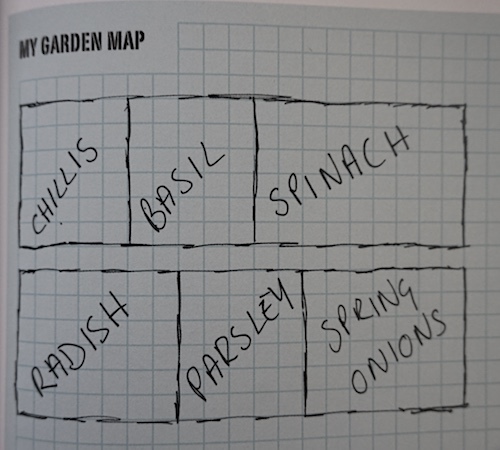 MY GARDEN MAP
CHILLIS
BASIL
SPINACH
RADISH
PARSLEY
SPRING
ONIONS